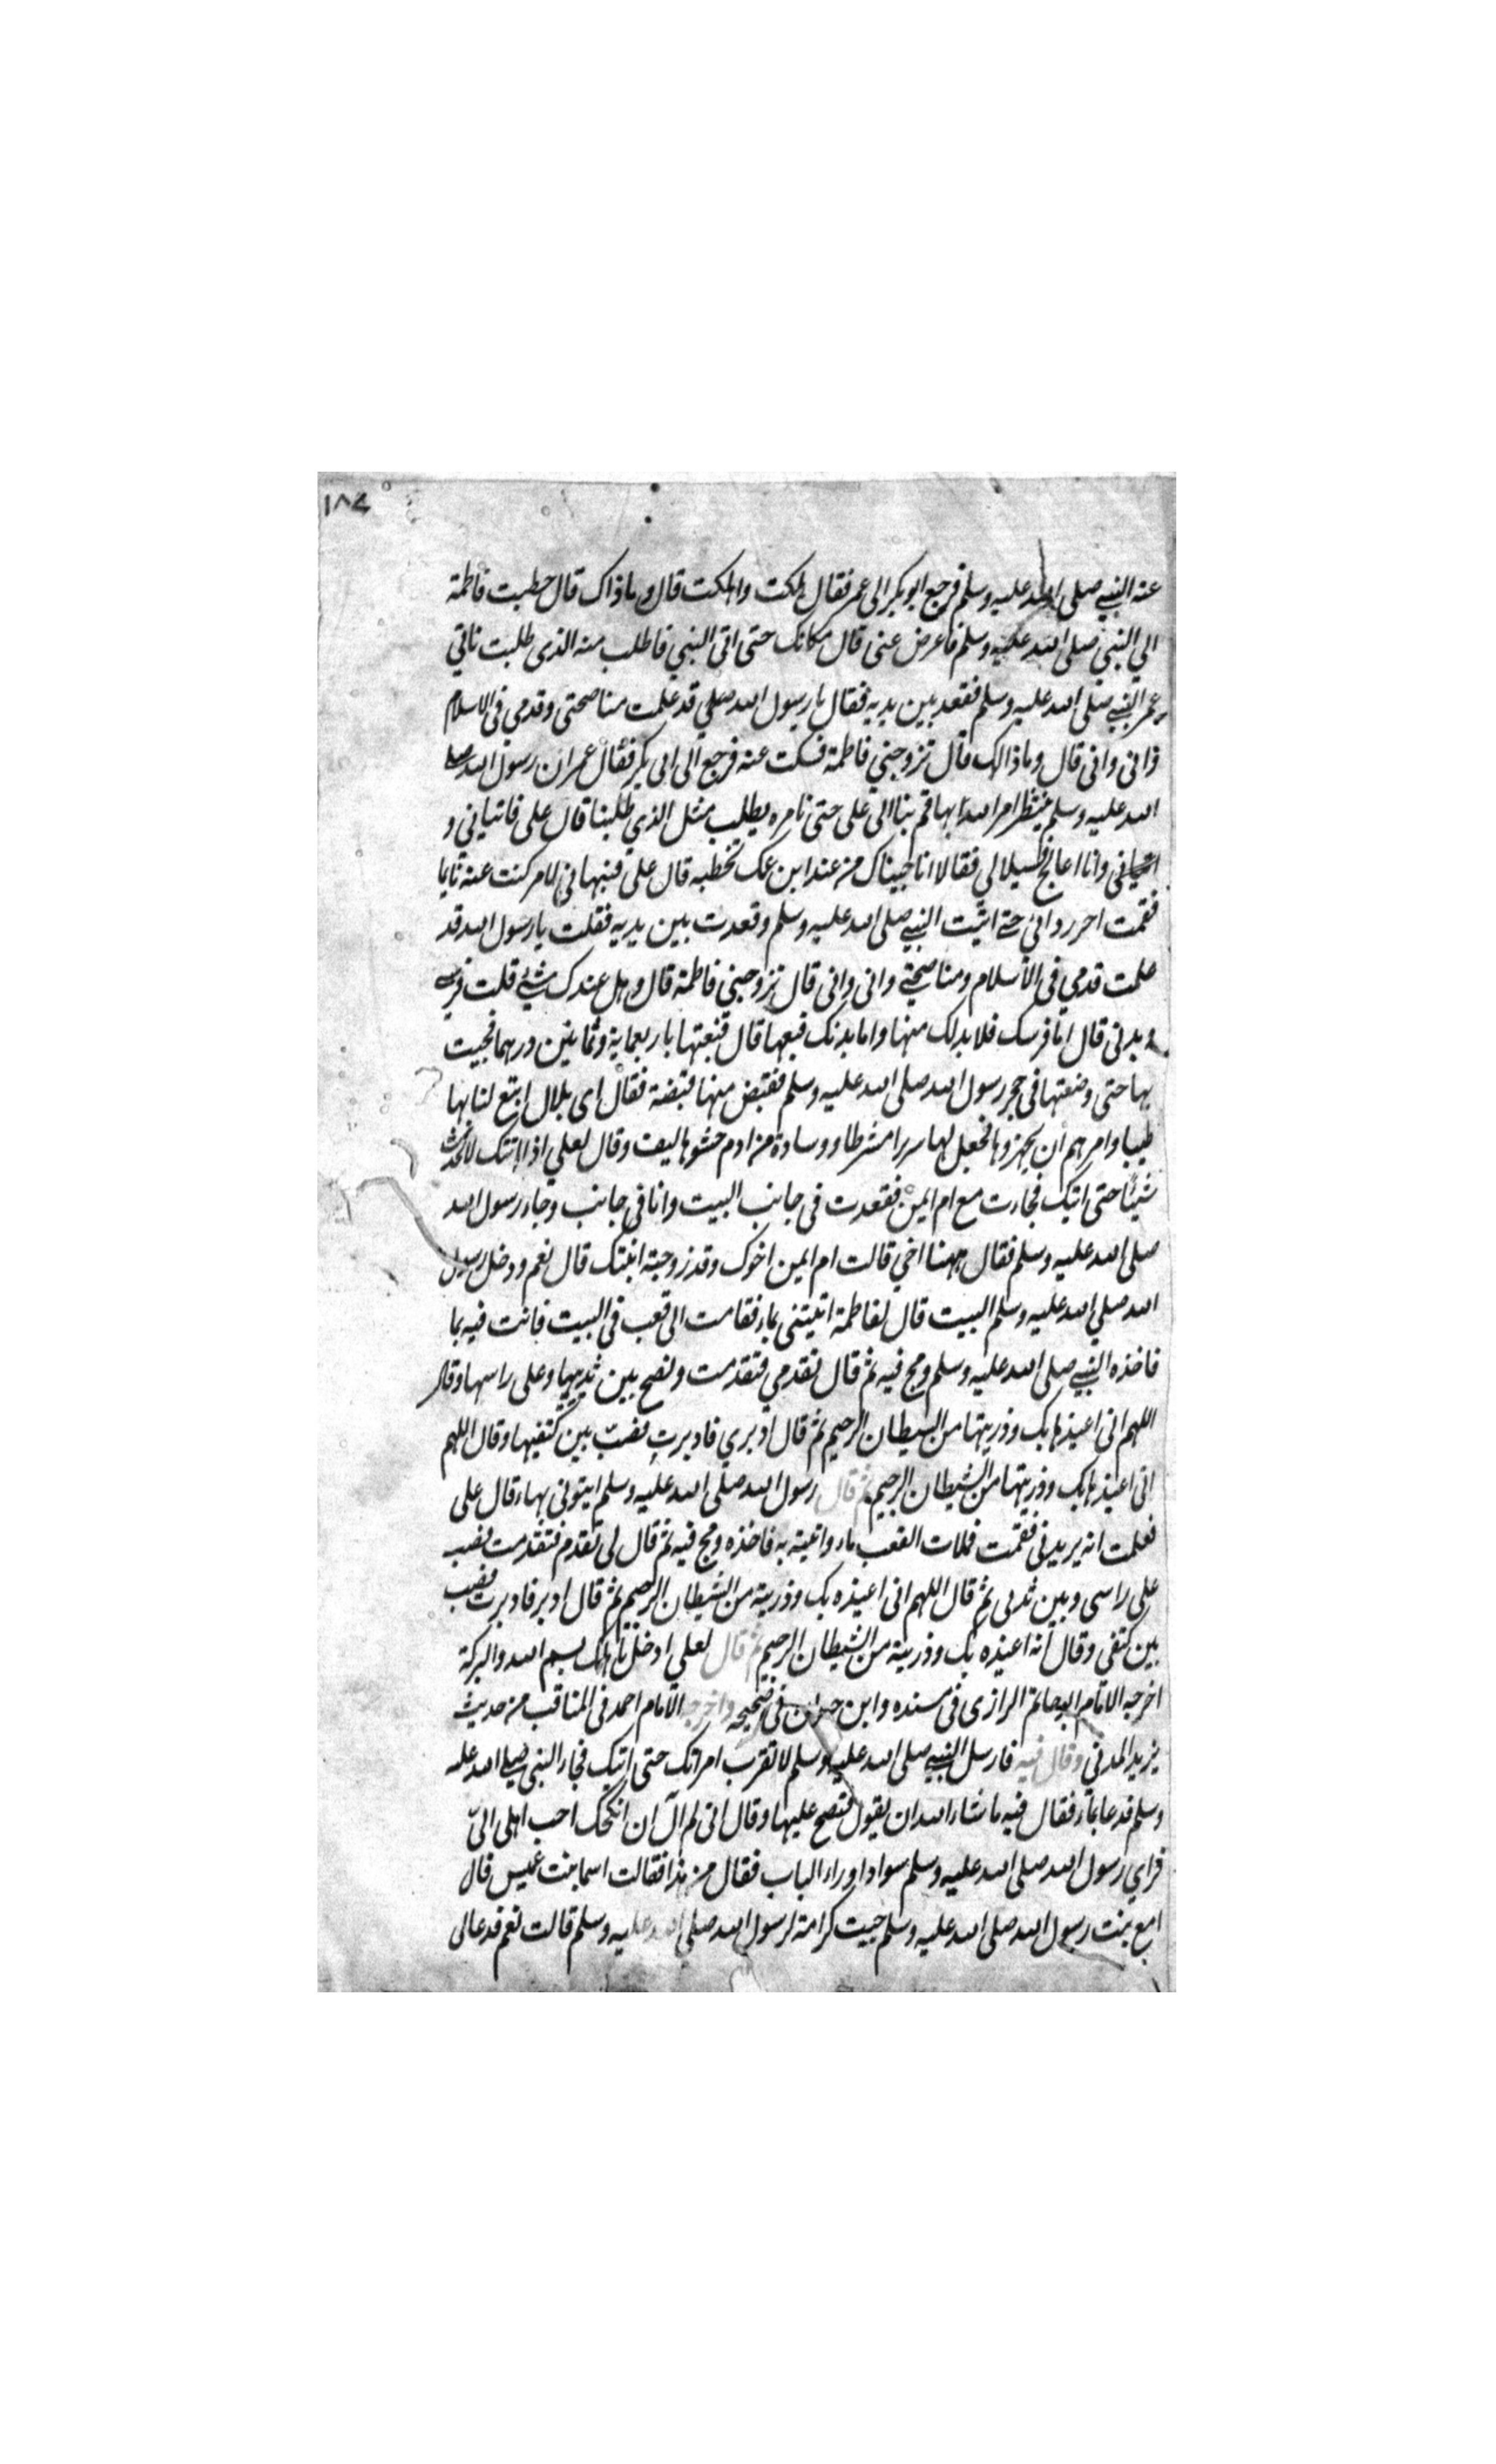 ١٨٤
عنه النبي صلى الله عليه وسلم فرجع ابو بكر الى عمر فقال هلكت واهلكت قال وما ذاك قال خطبت فاطمة
الي النبي صلى الله عليه وسلم فاعرض عنى قال مكانك حتى اتى النبي فاطلب منه الذى طلبت فاتي
عمر النبي صلى الله عليه وسلم فقعد بين يديه فقال يا رسول الله صلي قد علمت مناصحتى وقدمي فى الاسلام
وانى وانى قال وما ذالك قال تزوجني فاطمة فسكت عنه فرجع الى ابى بكر فقال عمر ان رسول الله صلى
الله عليه وسلم ينتظر امر الله بها قم بنا الى على حتى نامره يطلب مثل الذي طلبنا قال على فاتيانى و
وانا اعالج فسيلا لي فقالا انا جيناك من عند ابن عمك تخطبه قال على فنبهانى لامر كنت عنه نايما
فقمت اجر ردائي حتى اتيت النبي صلى الله عليه وسلم وقعدت بين يديه فقلت يا رسول الله قد
علمت قدمي فى الاسلام ومناصحتي وانى وانى قال تزوجني فاطمة قال وهل عندك شئ قلت فرسي
وبدنى قال اما فرسك فلا بد لك منها واما بدنك فبعها قال فبعتها باربعماية وثمانين درهما فجيت
بها حتى وضعتها فى حجر رسول الله صلى الله عليه وسلم فقبض منها قبضة فقال اى بلال ابتع لنا بها
طيبا وامرهم ان يجهزوها فجعل لها سريرا مشرطا ووسادة من ادم حشوها ليف وقال لعلي اذا اتتك لا تحدث
شيئا حتى اتيك فجاءت مع ام ايمن فقعدت فى جانب البيت وانا فى جانب وجاء رسول الله
صلى الله عليه وسلم فقال ههنا اخي قالت ام ايمن اخوك وقد زوجته ابنتك قال نعم ودخل رسول
الله صلي الله عليه وسلم البيت قال لفاطمة اتيتنى بماء فقامت الى قعب فى البيت فاتت فيه بما
فاخذه النبي صلى الله عليه وسلم ومج فيه ثم قال تقدمي فتقدمت ونضح بين ثدييها وعلى راسها وقال
اللهم انى اعيذها بك وذريتها من الشيطان الرجيم ثم قال ادبري فادبرت فصب بين كتفيها وقال اللهم
انى اعيذها بك وذريتها من الشيطان الرجيم ثم قال رسول الله صلى الله عليه وسلم ايتونى بماء قال على
فعلمت انه يريدنى فقمت فملات القعب ماء واتيته به فاخذه ومج فيه ثم قال لى تقدم فتقدمت فصب
على راسى وبين ثديى ثم قال اللهم انى اعيذه بك وذريته من الشيطان الرجيم ثم قال ادبر فادبرت فصب
بين كتفى وقال انه اعيذه بك وذريته من الشيطان الرجيم ثم قال لعلي ادخل باهلك بسم الله والبركة
اخرجه الامام ابو حاتم الرازى فى مسنده وابن حبان فى صحيحه واخرجه الامام احمد فى المناقب من حديث
يزيد المدنى وقال فيه فارسل النبي صلى الله عليه وسلم لا تقرب امراتك حتى اتيك فجاء النبى صلى الله عليه
وسلم فدعا بماء فقال فيه ما شاء الله ان يقول فنضح عليها وقال انى لم آل ان انكحك احب اهلى الىّ
فراى رسول الله صلى الله عليه وسلم سوادا وراء الباب فقال من هذا فقالت اسما بنت عميس قال
امع بنت رسول الله صلى الله عليه وسلم جيت كرامة لرسول الله صلى الله عليه وسلم قالت نعم فدعالى